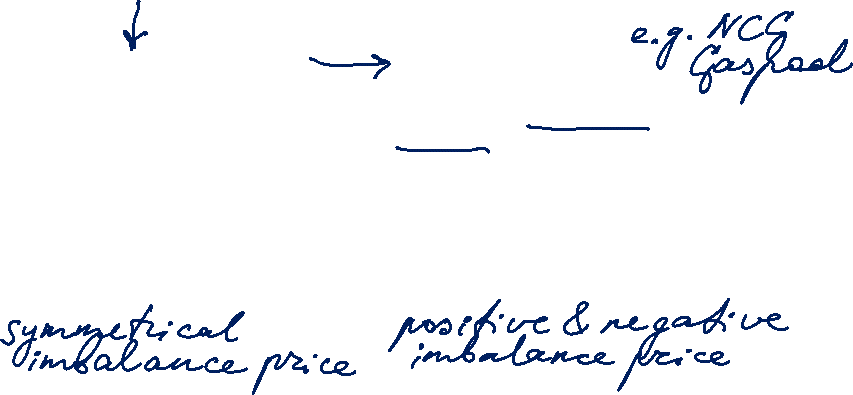 e.g. NCG
Gaspool
symmetrical
imbalance price
positive & negative
imbalance price